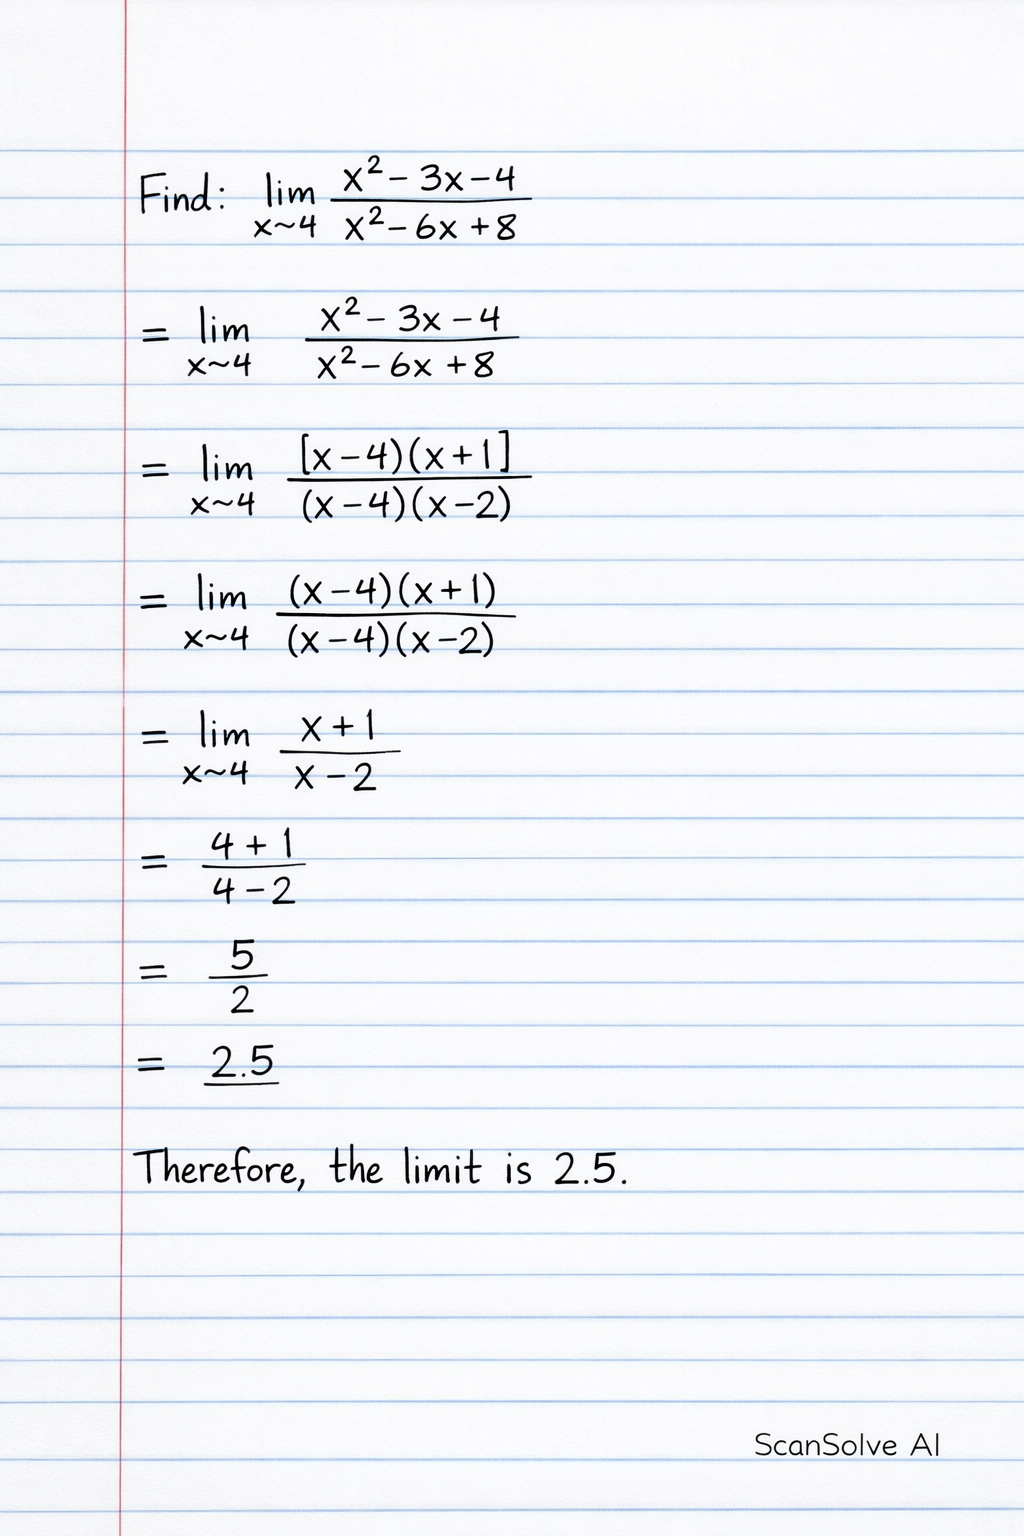 Find: lim x~4 (x² - 3x - 4)/(x² - 6x + 8)
= lim x~4 (x² - 3x - 4)/(x² - 6x + 8)
= lim x~4 [x-4)(x+1]/(x-4)(x-2)
= lim x~4 (x-4)(x+1)/(x-4)(x-2)
= lim x~4 (x+1)/(x-2)
= (4+1)/(4-2)
= 5/2
= 2.5
Therefore, the limit is 2.5.
ScanSolve AI